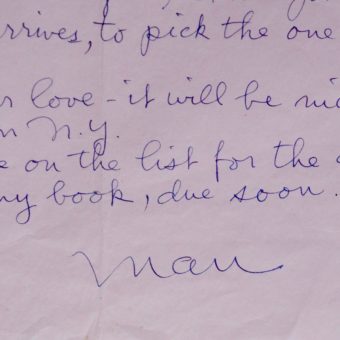 rrives, to pick the one
love - it will be ni
n N.Y.
on the list for the
my book, due soon.
Man